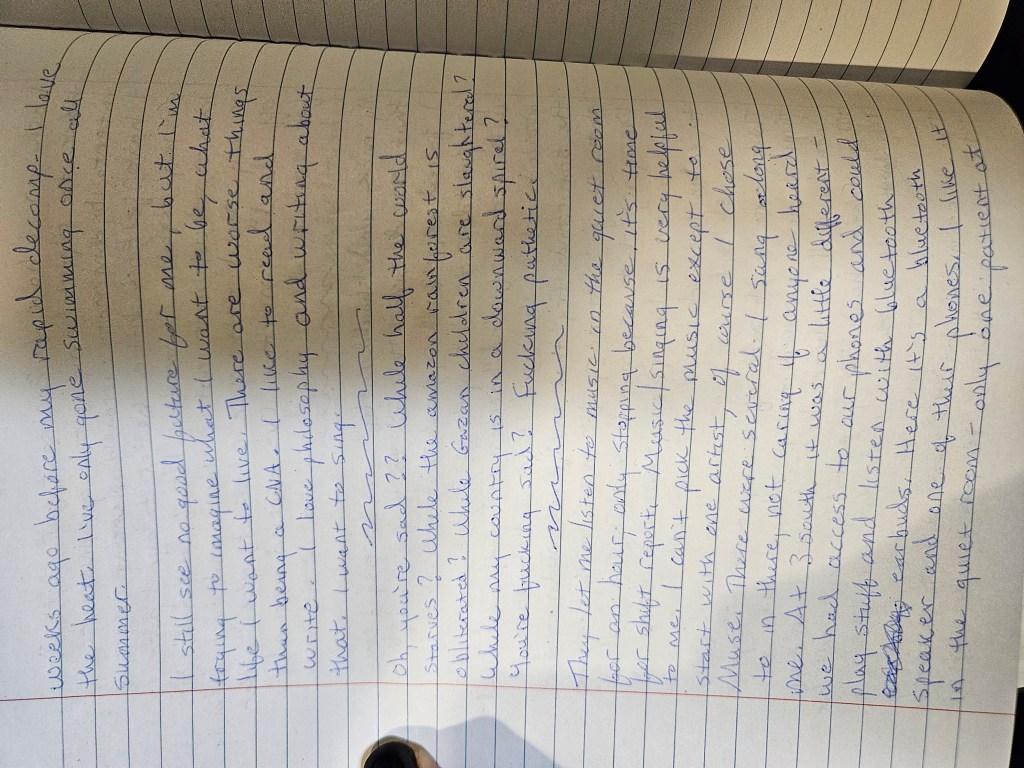 weeks ago before my rapid decomp- I love
the heat. I've only gone swimming once all
summer.
I still see no good future for me, but I'm
trying to imagine what I want to be, what
life I want to live. There are worse things
than being a CNA. I like to read and
write. I love philosophy and writing about
that. I want to sing.
Oh, you're sad?? While half the world
starves? While the amazon rainforest is
obliterated? While Gazan children are slaughtered?
While my country is in a downward spiral?
You're fucking sad? Fucking pathetic.
They let me listen to music in the quiet room
for an hour, only stopping because it's time
for shift report. Music/singing is very helpful
to me. I can't pick the music except to
start with one artist, of course I chose
Muse. There were several I sang along
to in there, not caring if anyone heard
me. At 3 South it was a little different -
we had access to our phones and could
play stuff and listen with bluetooth
earbuds. Here it's a bluetooth
speaker and one of their phones. I like it
in the quiet room - only one patient at